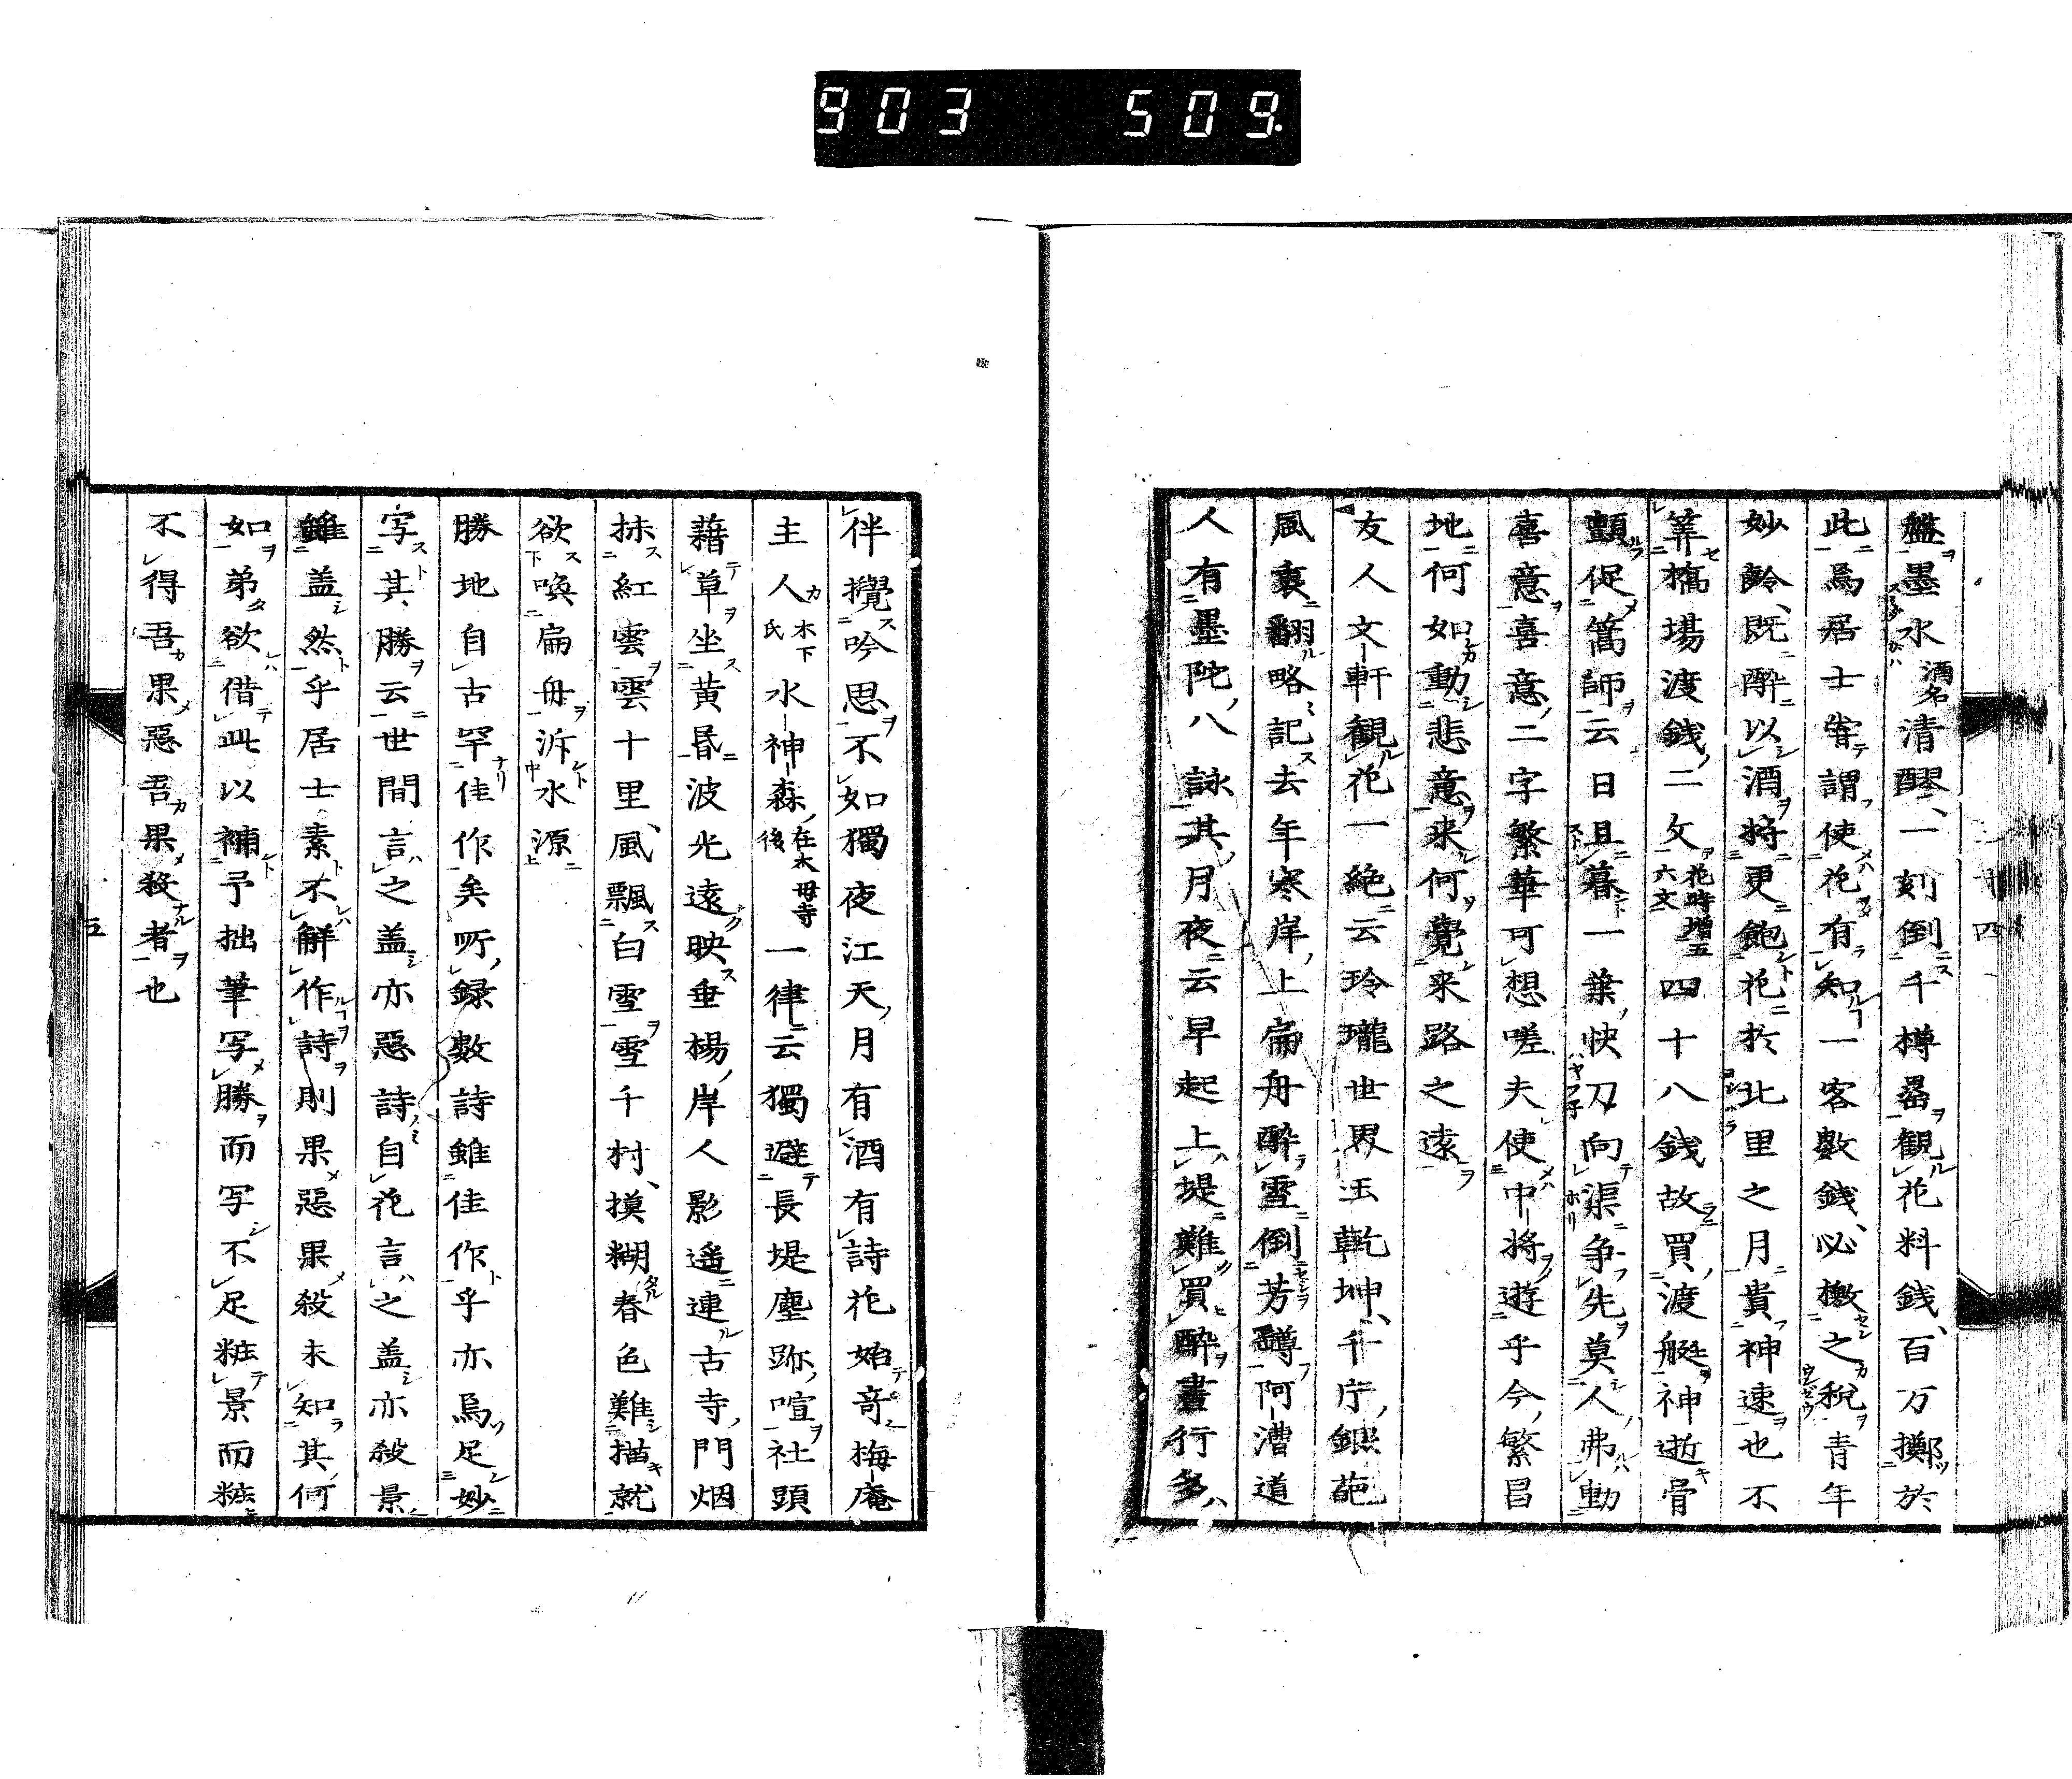 903 509.
盤墨水酒名清醪、一刻倒千樽罍観花料銭、百万擲於
此焉居士甞謂使花有知一客數銭、必檄之税青年
妙齢、既酔以酒将更飽花於北里之月貴神速也不
筭橋場渡銭二文花時増五六文四十八銭故買渡艇神逝骨
顫促篙師云日且暮一葉快刀向渠争先莫人弗動
喜意喜意二字繁華可想嗟夫使中将遊乎今繁昌
地何如動悲意来何覺来路之遠
友人文軒観花一絶云玲瓏世界玉乾坤、千庁
風裏翻略記去年寒岸上扁舟酔雪倒芳罇阿漕道
人有墨陀八詠其月夜云早起上堤難買酔晝行多
伴攪吟思不如獨夜江天月有酒有詩花始奇梅庵
主人木下氏水神森在木母寺後一律云獨避長堤塵跡喧社頭
藉草坐黄昏波光遠映垂楊岸人影遥連古寺門烟
抹紅雲雲十里風飄白雪雪千村摸糊春色難描就
欲喚扁舟泝水源
勝地自古罕佳作矣所録數詩雖佳作乎亦焉足妙
写其勝云世間言之盖亦惡詩自花言之盖亦殺景
雖盖然乎居士素不解作詩則果惡果殺未知其何
如弟欲借此以補予拙筆写勝而写不足粧景而粧
不得吾果惡吾果殺者也